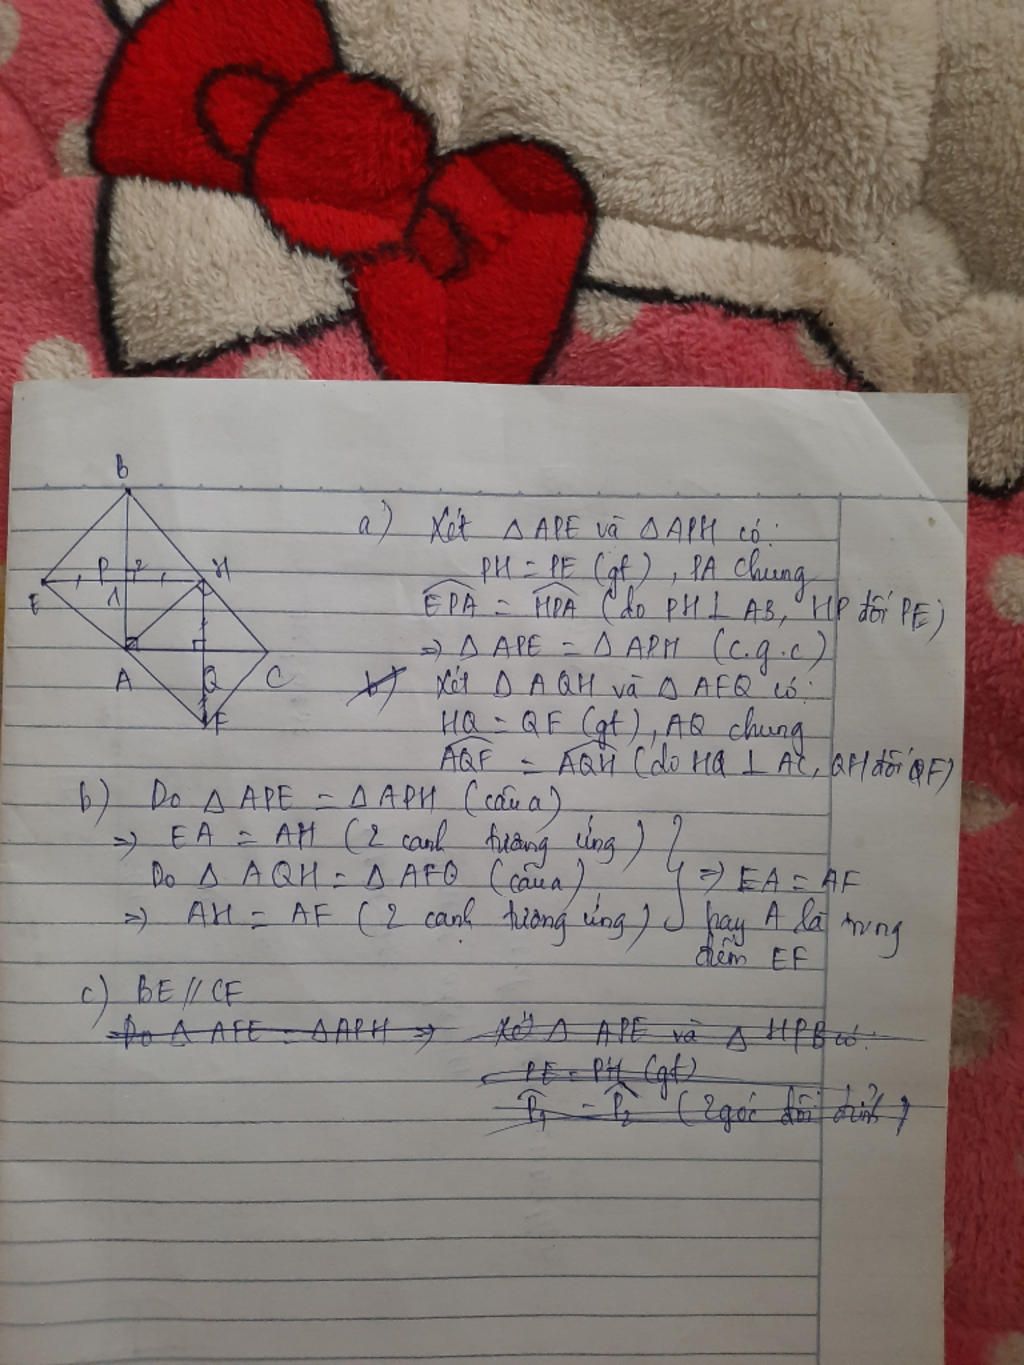 B
P 2 H
E 1
A Q C
F
a) Xét △ APE và △ APH có:
PH = PE (gt), PA chung
EPA = HPA (do PH ⊥ AB, HP đối PE)
=> △ APE = △ APH (c.g.c)
b) Xét △ AQH và △ AFQ có:
HQ = QF (gt), AQ chung
AQF = AQH (do HQ ⊥ AC, QH đối QF)
b) Do △ APE = △ APH (câu a)
=> EA = AH (2 cạnh tương ứng)
Do △ AQH = △ AFQ (câu a)
=> EA = AF
=> AH = AF (2 cạnh tương ứng)
hay A là trung
điểm EF
c) BE // CF
Do △ AFE = △ APH => Xét △ APE và △ HPB có:
PE = PH (gt)
P1 = P2 (2 góc đối đỉnh)